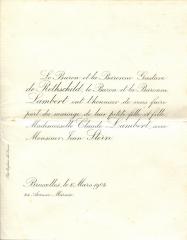 Le Baron et la Baronne Gustave
de Rothschild, le Baron et la Baronne
Lambert ont l'honneur de vous faire
part du mariage de leur petite fille et fille
Mademoiselle Claude Lambert, avec
Monsieur Jean Stern
Bruxelles, le 8 Mars 1904
24 Avenue Marnix